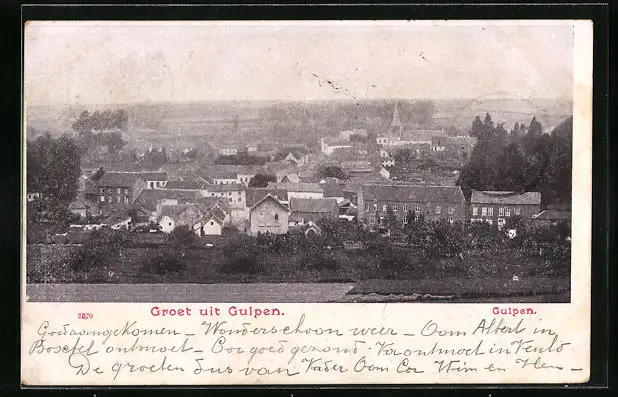 3570 Groet uit Gulpen. Gulpen.
Goed aangekomen - Wonderschoon weer - Oom Albert in
Boxtel ontmoet - Cor goed gezond. Va ontmoet in Venlo
De groeten Jus van Vader Oom Cor Wim en Hen -